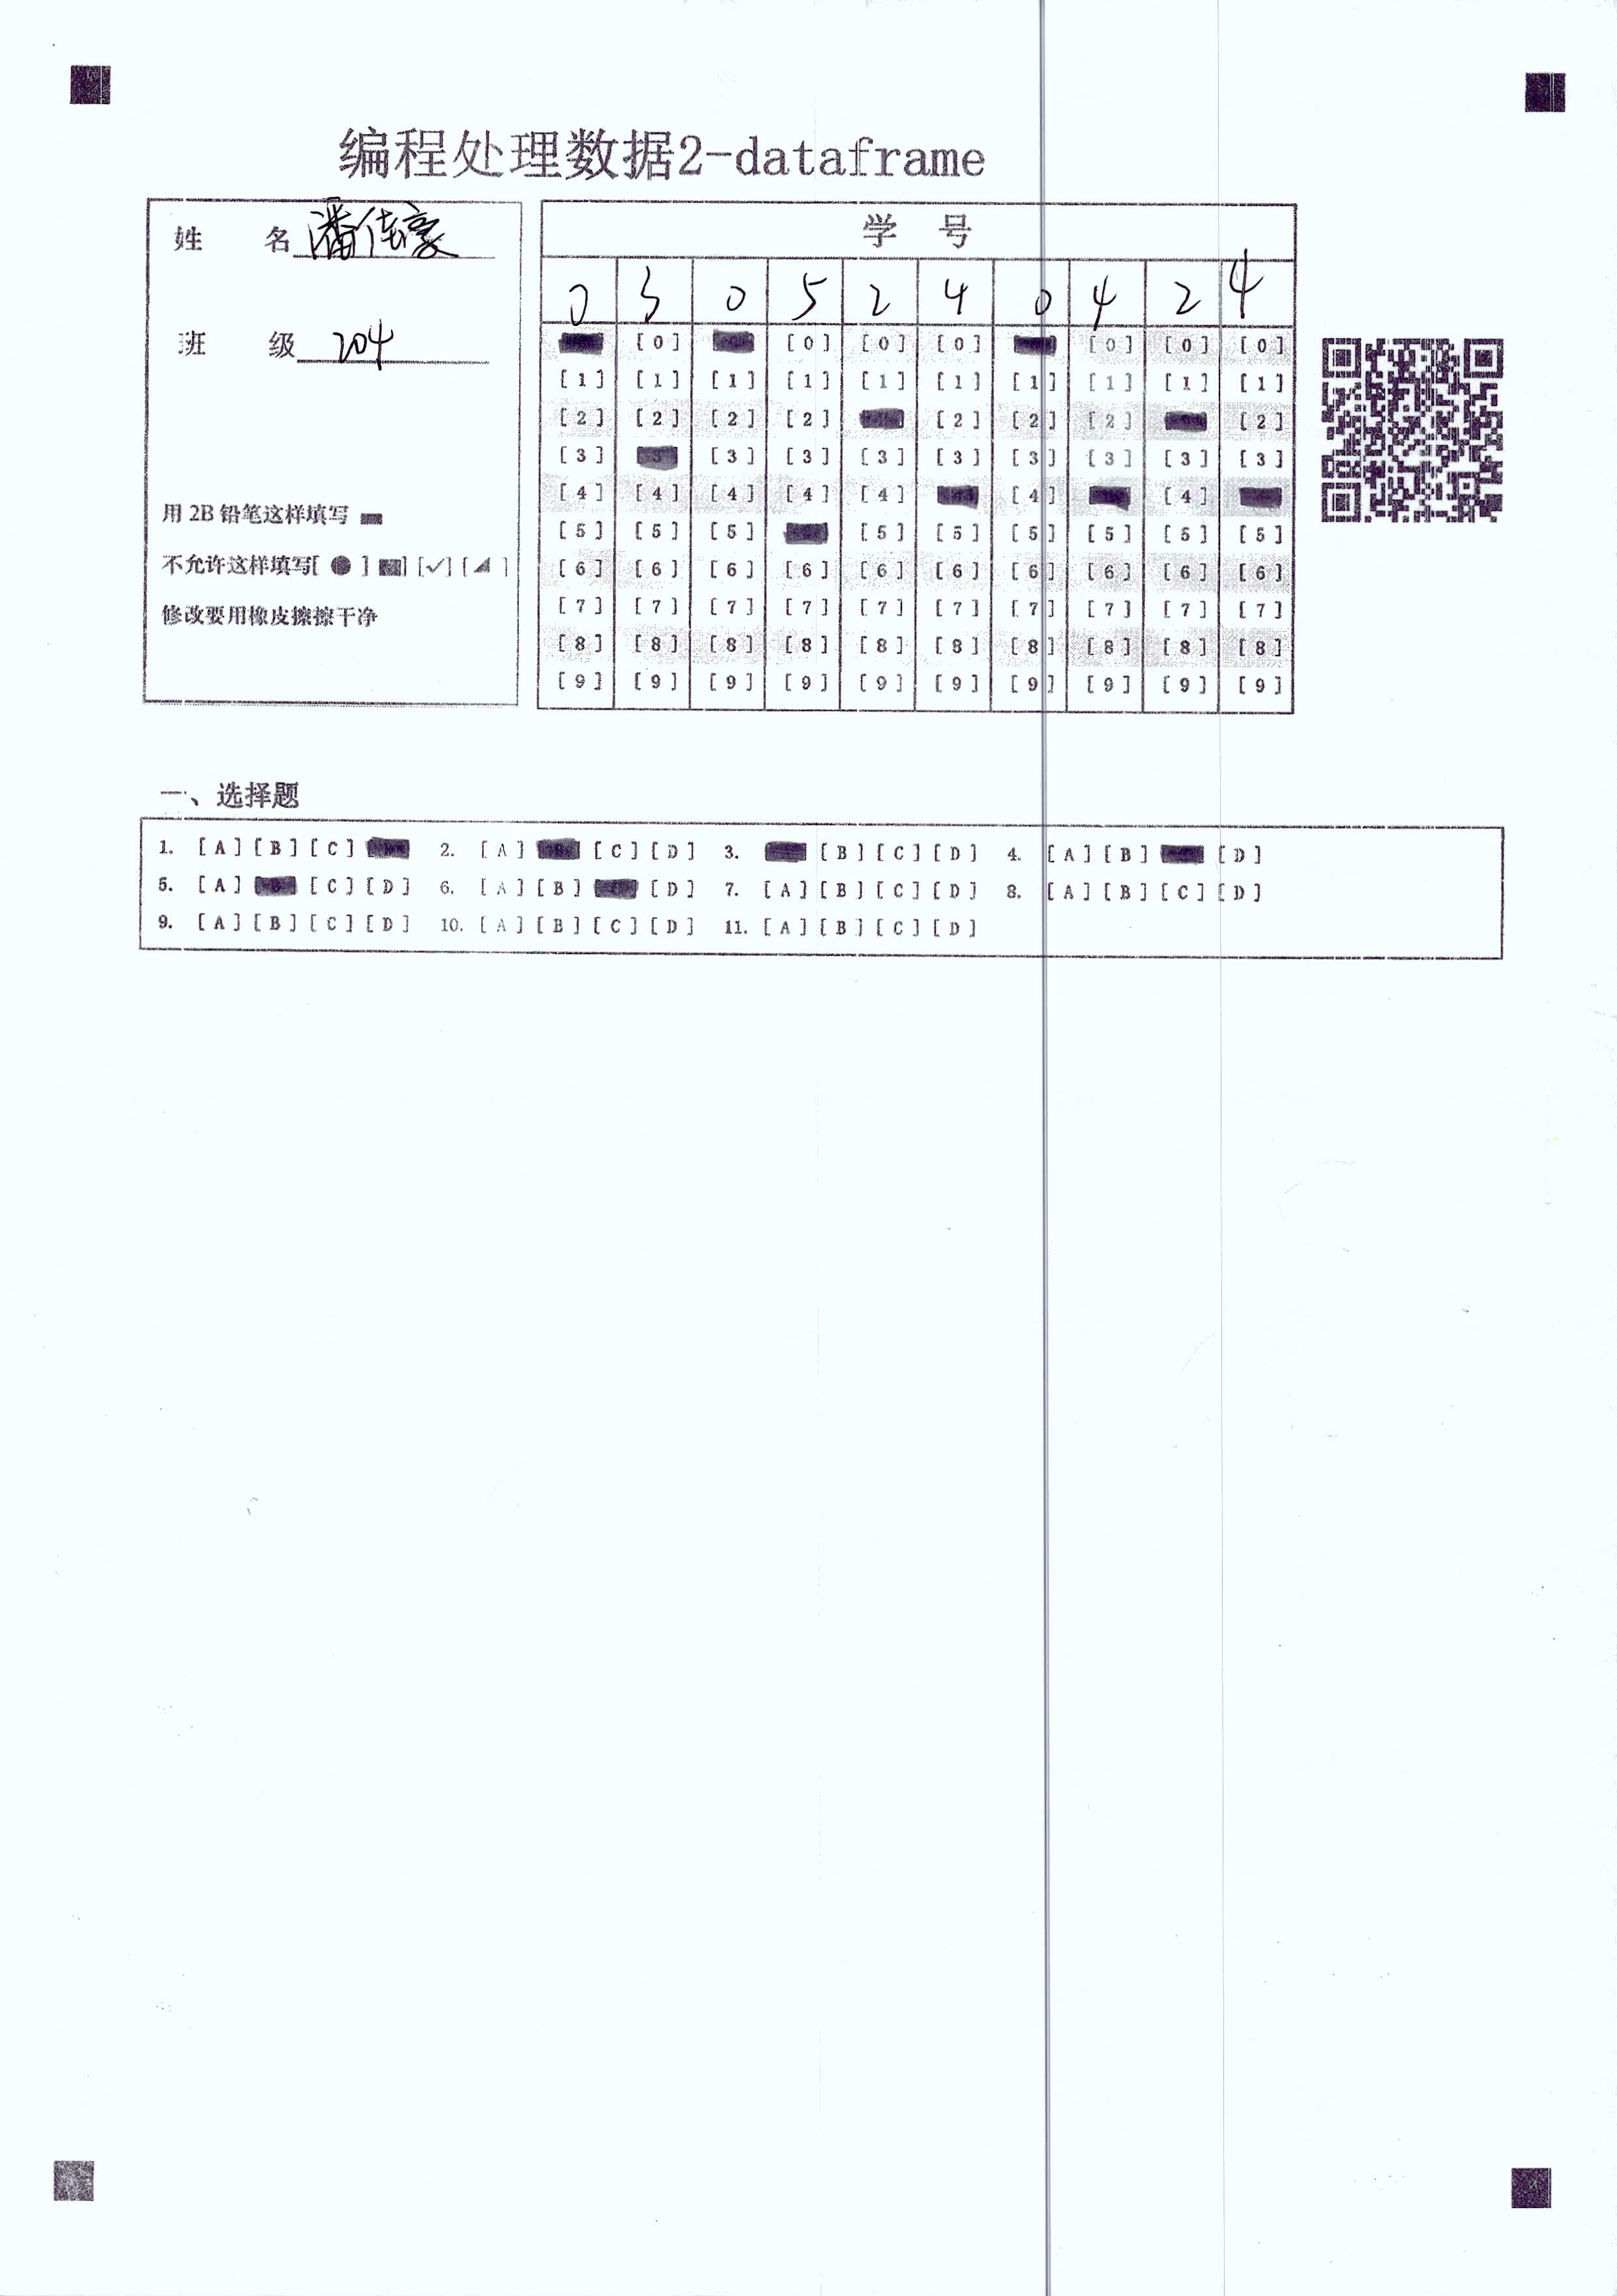 编程处理数据2-dataframe
姓 名 潘佳豪
班 级 204
用 2B 铅笔这样填写
不允许这样填写[ ● ] [ ] [✓] [ ]
修改要用橡皮擦擦干净
学 号
0 3 0 5 2 4 0 4 2 4
[0] [0] [0] [0] [0] [0] [0]
[1] [1] [1] [1] [1] [1] [1] [1] [1] [1]
[2] [2] [2] [2] [2] [2] [2] [2]
[3] [3] [3] [3] [3] [3] [3] [3] [3]
[4] [4] [4] [4] [4] [4] [4]
[5] [5] [5] [5] [5] [5] [5] [5] [5]
[6] [6] [6] [6] [6] [6] [6] [6] [6] [6]
[7] [7] [7] [7] [7] [7] [7] [7] [7] [7]
[8] [8] [8] [8] [8] [8] [8] [8] [8] [8]
[9] [9] [9] [9] [9] [9] [9] [9] [9] [9]
一、选择题
1. [A] [B] [C] 2. [A] [C] [D] 3. [B] [C] [D] 4. [A] [B] [D]
5. [A] [C] [D] 6. [A] [B] [D] 7. [A] [B] [C] [D] 8. [A] [B] [C] [D]
9. [A] [B] [C] [D] 10. [A] [B] [C] [D] 11. [A] [B] [C] [D]